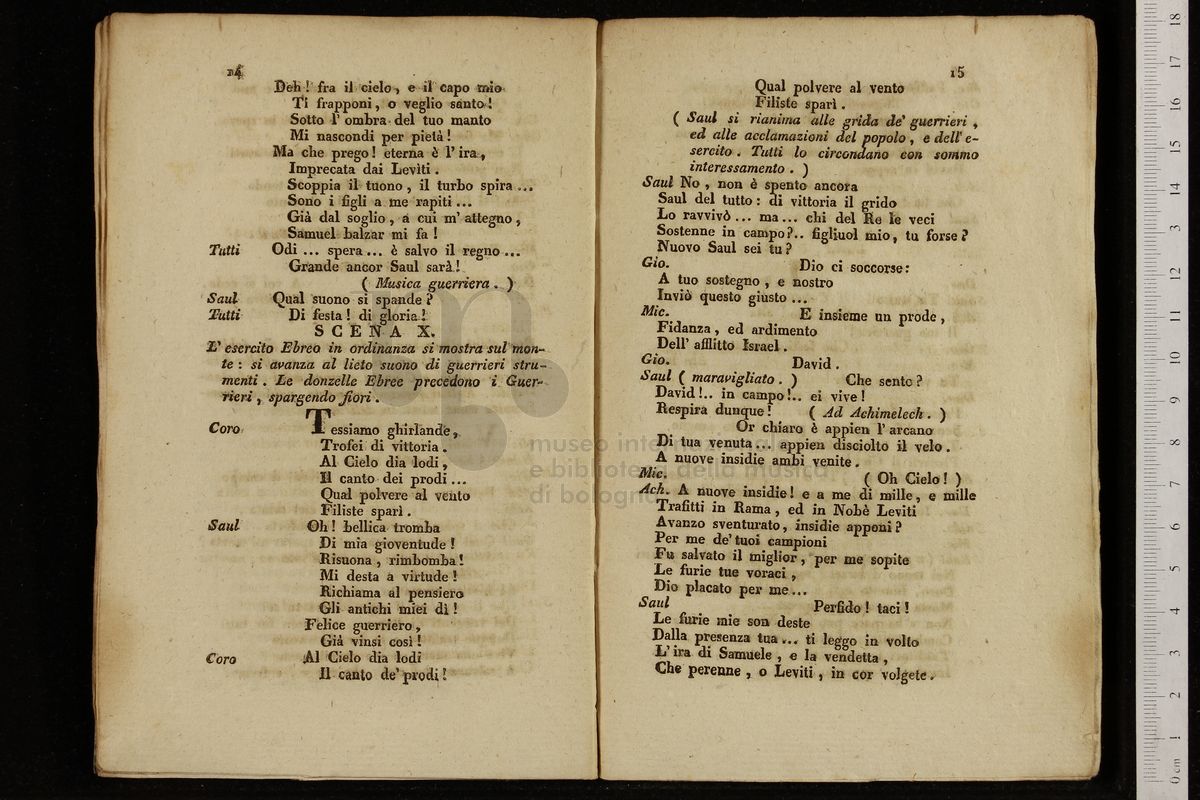 14
Deh! fra il cielo, e il capo mio
Ti frapponi, o veglio santo!
Sotto l'ombra del tuo manto
Mi nascondi per pietà!
Ma che prego! eterna è l'ira,
Imprecata dai Leviti.
Scoppia il tuono, il turbo spira...
Sono i figli a me rapiti...
Già dal soglio, a cui m'attegno,
Samuel balzar mi fa!
Tutti Odi... spera... è salvo il regno...
Grande ancor Saul sarà!
( Musica guerriera. )
Saul Qual suono si spande?
Tutti Di festa! di gloria!
SCENA X.
L'esercito Ebreo in ordinanza si mostra sul mon-
te: si avanza al lieto suono di guerrieri stru-
menti. Le donzelle Ebree precedono i Guer-
rieri, spargendo fiori.
Coro Tessiamo ghirlande,
Trofei di vittoria.
Al Cielo dia lodi,
Il canto dei prodi...
Qual polvere al vento
Filiste sparì.
Saul Oh! bellica tromba
Di mia gioventude!
Risuona, rimbomba!
Mi desta a virtude!
Richiama al pensiero
Gli antichi miei dì!
Felice guerriero,
Già vinsi così!
Coro Al Cielo dia lodi
Il canto de' prodi!
15
Qual polvere al vento
Filiste sparì.
( Saul si rianima alle grida de' guerrieri,
ed alle acclamazioni del popolo, e dell'e-
sercito. Tutti lo circondano con sommo
interessamento. )
Saul No, non è spento ancora
Saul del tutto: di vittoria il grido
Lo ravvivò... ma... chi del Re le veci
Sostenne in campo?.. figliuol mio, tu forse?
Nuovo Saul sei tu?
Gio. Dio ci soccorse:
A tuo sostegno, e nostro
Inviò questo giusto...
Mic. E insieme un prode,
Fidanza, ed ardimento
Dell' afflitto Israel.
Gio. David.
Saul ( maravigliato. ) Che sento?
David!.. in campo!.. ei vive!
Respira dunque! ( Ad Achimelech. )
Or chiaro è appien l'arcano
Di tua venuta... appien disciolto il velo.
A nuove insidie ambi venite.
Mic. ( Oh Cielo! )
Ach. A nuove insidie! e a me di mille, e mille
Trafitti in Rama, ed in Nobè Leviti
Avanzo sventurato, insidie apponi?
Per me de' tuoi campioni
Fu salvato il miglior, per me sopite
Le furie tue voraci,
Dio placato per me...
Saul Perfido! taci!
Le furie mie son deste
Dalla presenza tua... ti leggo in volto
L'ira di Samuele, e la vendetta,
Che perenne, o Leviti, in cor volgete.
museo internazionale
e biblioteca della musica
di bologna
0 cm 1 2 3 4 5 6 7 8 9 10 11 12 13 14 15 16 17 18